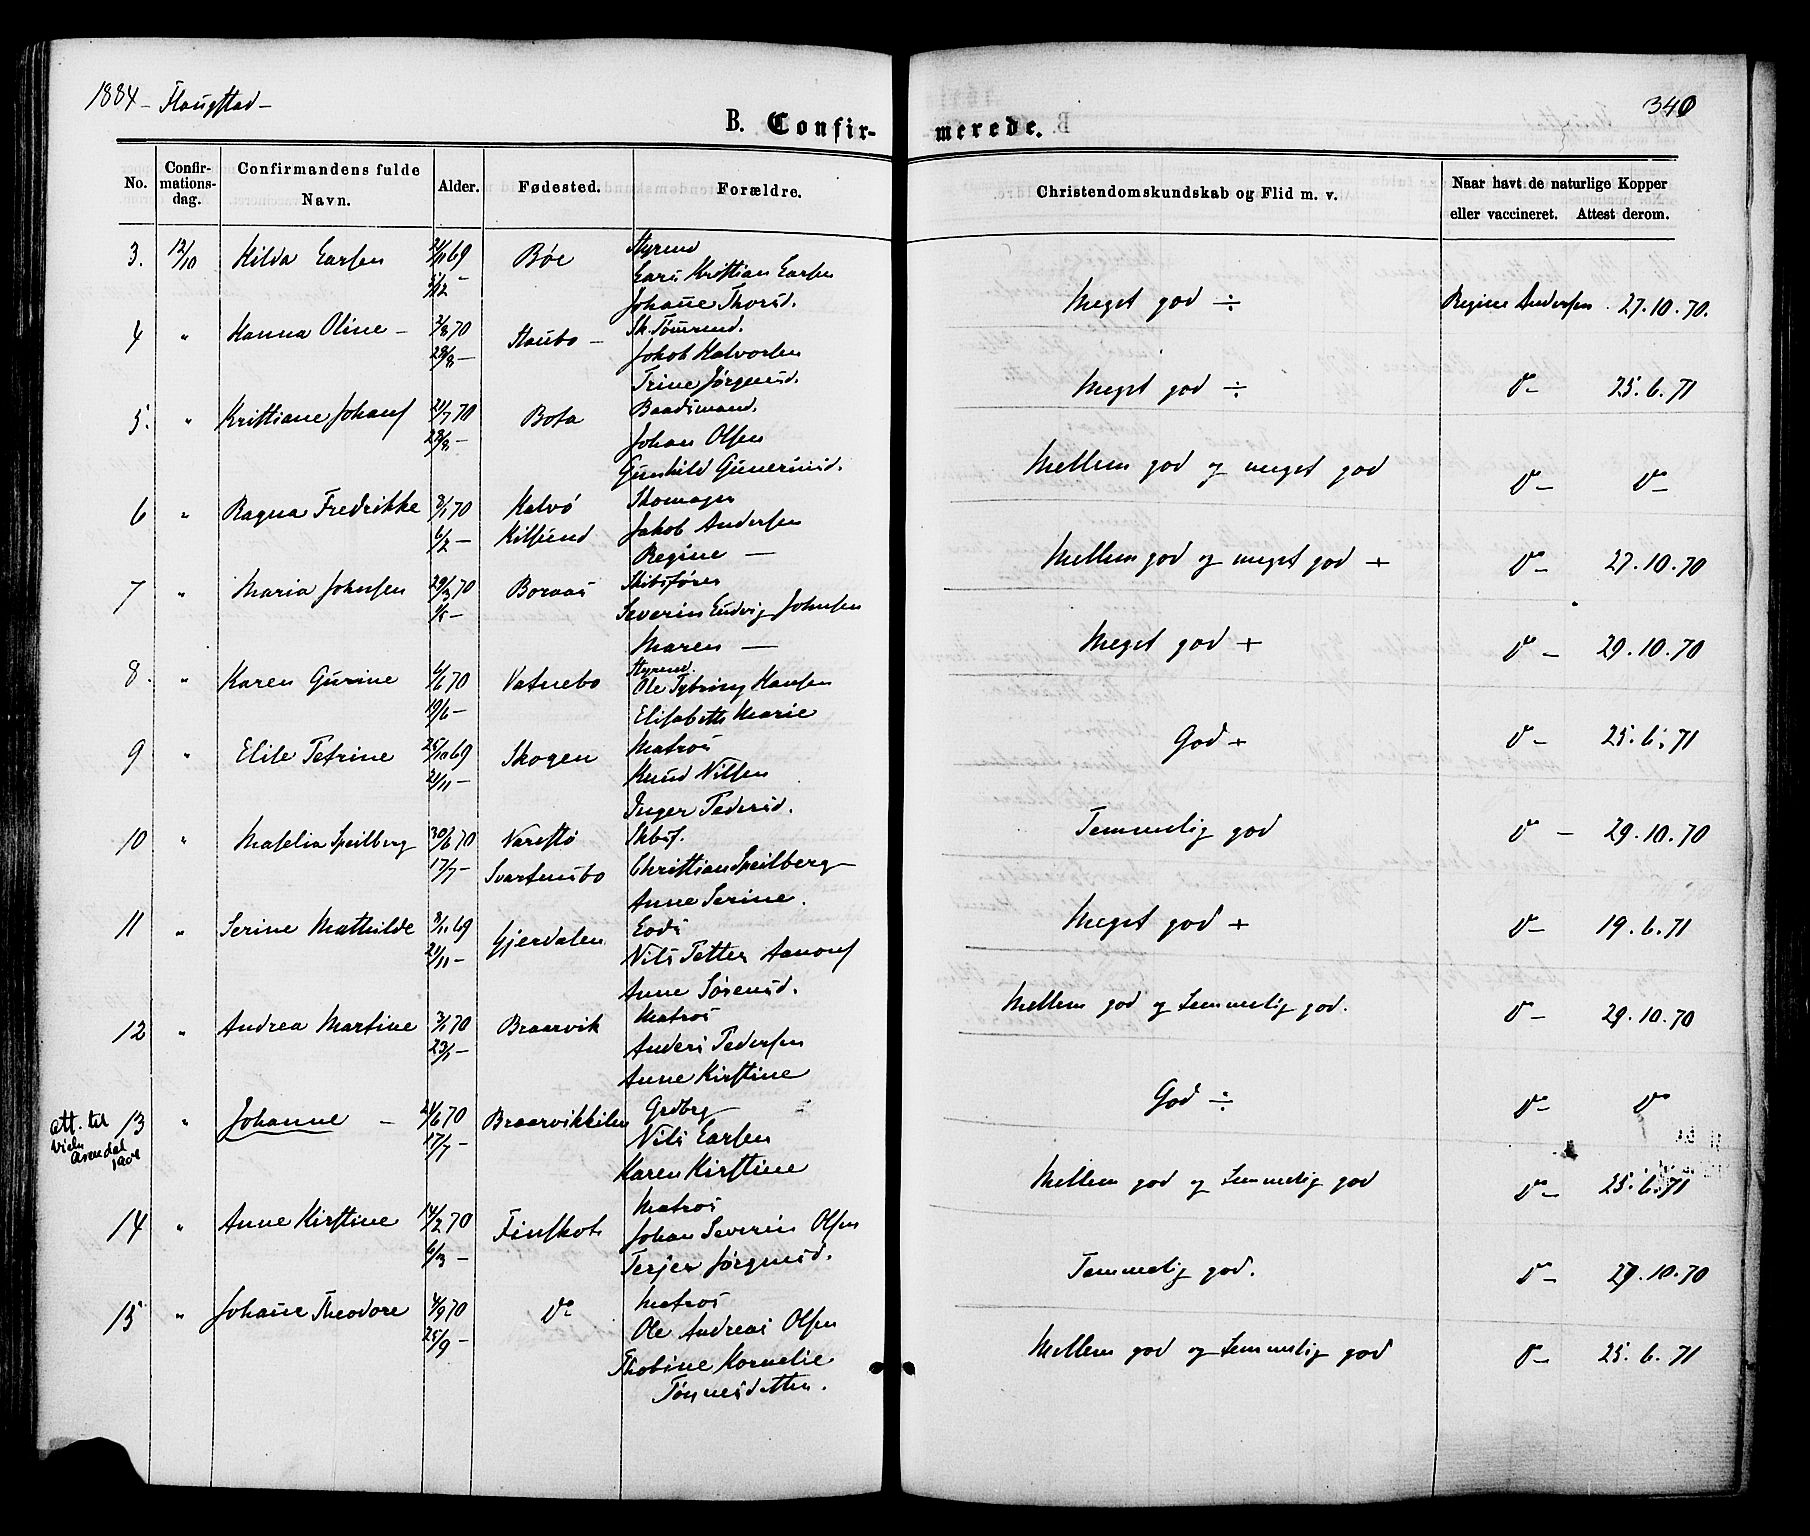 1884 - Flangstad -
340
B. Confir-
merede.
No.
Confir-
mations-
dag.
Confirmandens fulde
Navn.
Alder.
Fødested.
Forældre.
Christendomskundskab og Flid m. v.
Naar havt de naturlige Kopper
eller vaccineret. Attest derom.
3. 12/10 Hilda Larsen 21/11 69 Bøe Styrmd
5/12 - Lars Kristian Larsen
Johanne Thorsd. Meget god ÷ Regine Andersen. 27.10.70.
4 " Hanna Oline - 2/8 70 Staubo - Sk. Tømmd.
28/8 - Jakob Halvorsen
Trine Jørgensd. Meget god ÷ Do - 25.6.71
5. " Kristiane Johans 21/7 70 Bota Baadsmand.
28/8 - Johan Olsen
Gunhild Gunersd. Mellem god og meget god Do - Do -
6 " Ragna Fredrikke 3/1 70 Kalvø Skomager
6/2 - Kilsund Jakob Andersen
Regine - Mellem god og meget god + Do - 27.10.70
7 " Maria Johnsen 29/3 70 Boraas Skibsfører
1/5 - Severin Ludvig Johnsen
Maren - Meget god + Do - 29.10.70
8. " Karen Gurine 6/5 70 Vatnebo Styrmd.
19/6 - Ole Tybring Hansen
Elisabeth Marie God + Do - 25.6.71
9 " Elise Petrine 25/10 69 Skogen Matros
21/11 - Knud Nilsen
Inger Pedersd. Temmelig god Do - 29.10.70
10 " Maselia Speilberg 30/6 70 Narestø Skbsf.
17/7 - Svartnesbo Christian Speilberg
Anne Serine. Meget god + Do - 19.6.71
11 " Serine Mathilde 8/11 69 Gjerdalen Lods
21/11 - Nils Petter Aanons
Anne Sørensd. Mellem god og temmelig god. Do - 29.10.70
12 " Andrea Martine 3/1 70 Braarvik Matros
23/1 - Anders Pedersen
Anne Kirstine God ÷ Do - Do
att. til
Arendal
1901
13 " Johanne - 21/6 70 Braarvikkilen Grdbrg
17/7 - Nils Larsen
Karen Kirstine Mellem god og temmelig god Do - 25.6.71
14 " Anne Kirstine 14/2 70 Finskot Matros
6/3 - Johan Severin Olsen
Terjer Jørgensd. Temmelig god. Do - 29.10.70
15 " Johanne Theodore 4/9 70 Do Matros
25/9 - Ole Andreas Olsen
Thobine Kornelie
Tønnesdatter. Mellem god og temmelig god Do - 25.6.71